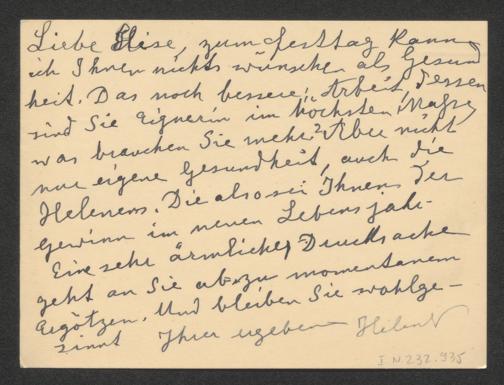 Liebe Elise, zum Festtag kann
ich Ihnen nichts wünschen als Gesund
heit. Das noch bessere, Arbeit, dessen
sind Sie Eignerin im höchsten Maße,
was brauchen Sie mehr? Aber nicht
nur eigene Gesundheit, auch die
Helenens. Die also sei Ihnen der
Gewinn im neuen Lebensjahr.
Eine sehr ärmliche Drucksache
geht an Sie ab zu momentanem
Ergötzen. Und bleiben Sie wohlge-
sinnt Ihrer ergeben
I N. 232.935